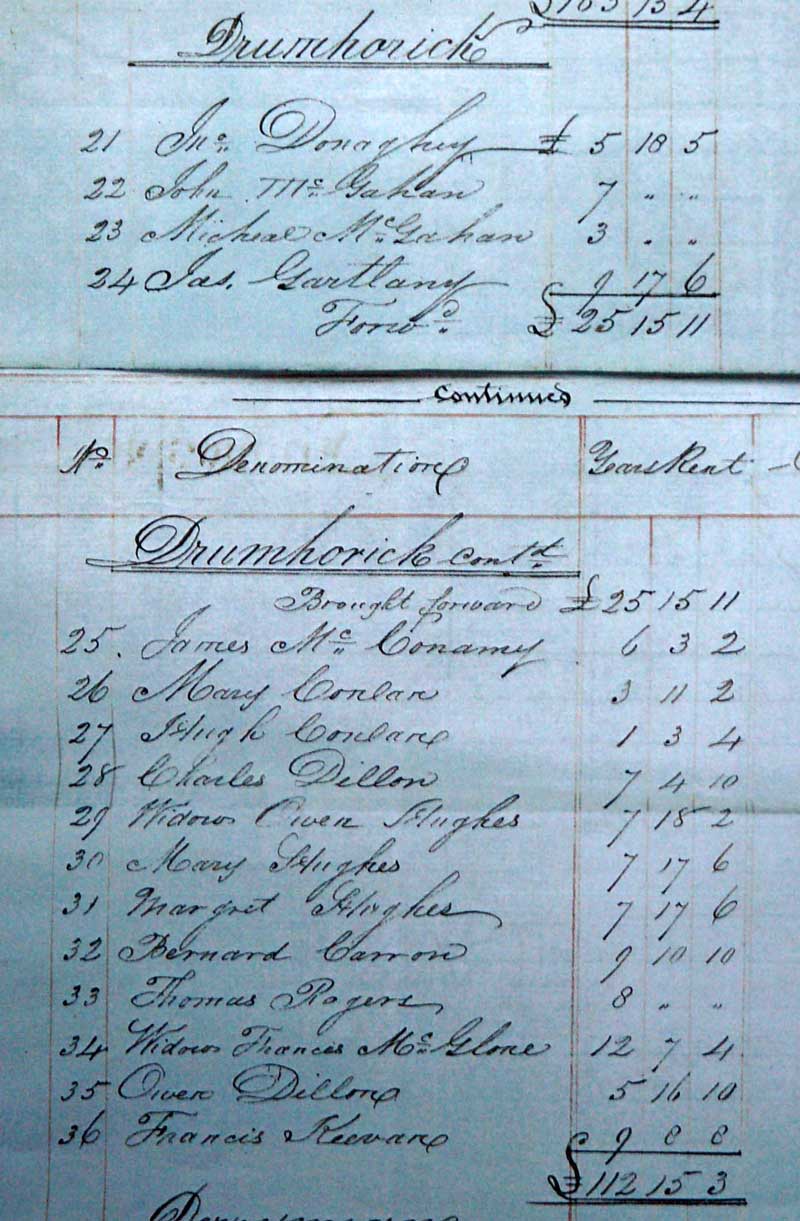 15 4
Drumhorick
21 Jno. Donaghey £ 5 18 5
22 John McGahan 7 " "
23 Micheal McGahan 3 " "
24 Jas. Gartlany 9 17 6
Forwd. £ 25 15 11
Continued
No. Denomination Years Rent
Drumhorick contd.
Brought forward £ 25 15 11
25. James McConamy 6 3 2
26 Mary Conlan 3 11 2
27 Hugh Conlan 1 3 4
28 Charles Dillon 7 4 10
29 Widow Owen Hughes 7 18 2
30 Mary Hughes 7 17 6
31 Margret Hughes 7 17 6
32 Bernard Carron 9 10 10
33 Thomas Rogers 8 " "
34 Widow Francis McGlone 12 7 4
35 Owen Dillon 5 16 10
36 Francis Keevan 9 8 8
£ 112 15 3